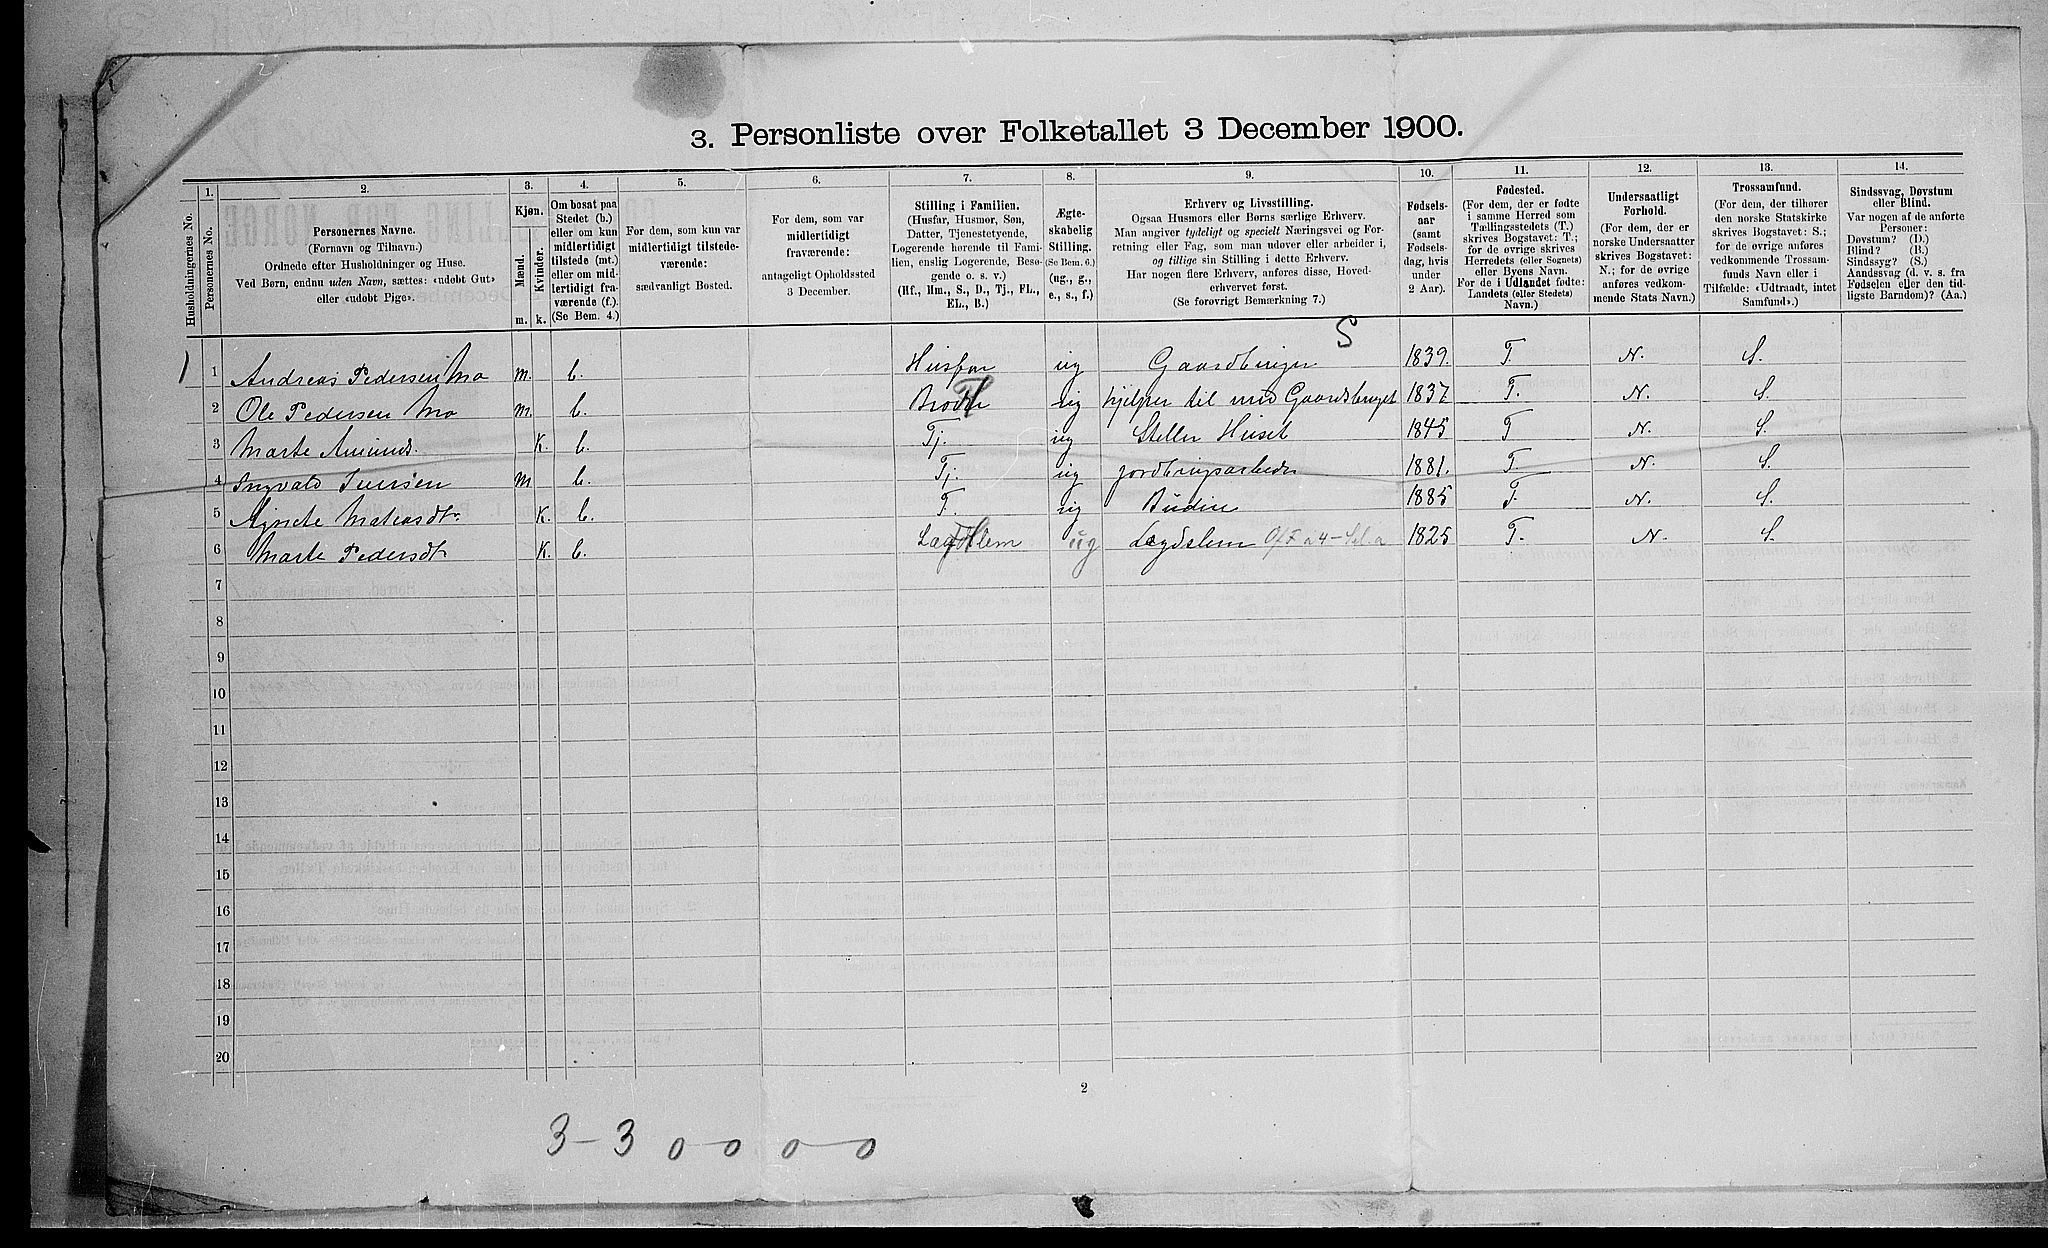 3. Personliste over Folketallet 3 December 1900.
Husholdningernes No.
1.
Personernes No.
2.
Personernes Navne.
(Fornavn og Tilnavn.)
Ordnede efter Husholdninger og Huse.
Ved Børn, endnu uden Navn, sættes: «udøbt Gut»
eller «udøbt Pige».
3.
Kjøn.
Mænd.
Kvinder.
m. k.
4.
Om bosat paa
Stedet (b.)
eller om kun
midlertidigt
tilstede (mt.)
eller om mid-
lertidigt fra-
værende (f.).
(Se Bem. 4.)
5.
For dem, som kun var
midlertidigt tilstede-
værende:
sædvanligt Bosted.
6.
For dem, som var
midlertidigt
fraværende:
antageligt Opholdssted
3 December.
7.
Stilling i Familien.
(Husfar, Husmor, Søn,
Datter, Tjenestetyende,
Logerende hørende til Fami-
lien, enslig Logerende, Besø-
gende o. s. v.)
(Hf., Hm., S., D., Tj., FL.,
EL., B.)
8.
Ægte-
skabelig
Stilling.
(Se Bem. 6.)
(ug., g.,
e., s., f.)
9.
Erhverv og Livsstilling.
Ogsaa Husmors eller Børns særlige Erhverv.
Man angiver tydeligt og specielt Næringsvei og For-
retning eller Fag, som man udøver eller arbeider i,
og tillige sin Stilling i dette Erhverv.
Har nogen flere Erhverv, anføres disse, Hoved-
erhvervet først.
(Se forøvrigt Bemærkning 7.)
10.
Fødsels-
aar
(samt
Fødsels-
dag, hvis
under
2 Aar).
11.
Fødested.
(For dem, der er fødte
i samme Herred som
Tællingsstedets (T.)
skrives Bogstavet: T.;
for de øvrige skrives
Herredets (eller Sognets)
eller Byens Navn.
For de i Udlandet fødte:
Landets (eller Stedets)
Navn.)
12.
Undersaatligt
Forhold.
(For dem, der er
norske Undersaatter
skrives Bogstavet:
N.; for de øvrige
anføres vedkom-
mende Stats Navn.)
13.
Trossamfund.
(For dem, der tilhører
den norske Statskirke
skrives Bogstavet: S.;
for de øvrige anføres
vedkommende Trossam-
funds Navn eller i
Tilfælde: «Udtraadt, intet
Samfund».)
14.
Sindssvag, Døvstum
eller Blind.
Var nogen af de anførte
Personer:
Døvstum? (D.)
Blind? (B.)
Sindssyg? (S.)
Aandssvag (d. v. s. fra
Fødselen eller den tid-
ligste Barndom)? (Aa.)
S
1 1 Andreas Pedersen Mo m. b. Husfar ug Gaardbruger 1839. T. N. S.
2 Ole Pedersen Mo m. b. Broder Fl ug hjelper til med Gaardsbruget 1837 T. N. S.
3 Marte Amunds. K. b. Tj. ug Steller Huset 1845 T N. S.
4 Ingvald Iversen m b. Tj. ug jordbrugsarbeder 1881. T. N. S.
5 Agnete Matiasdtr. K. b. T. ug Budeie 1885 T. N. S.
6 Marte Pedersdt K. b. Lægdslem ug Lægdslem 1825 T. N. S.
7
8
9
10
11
12
13
14
15
16
17
18
19
20
2
3-3 0-0 0-0